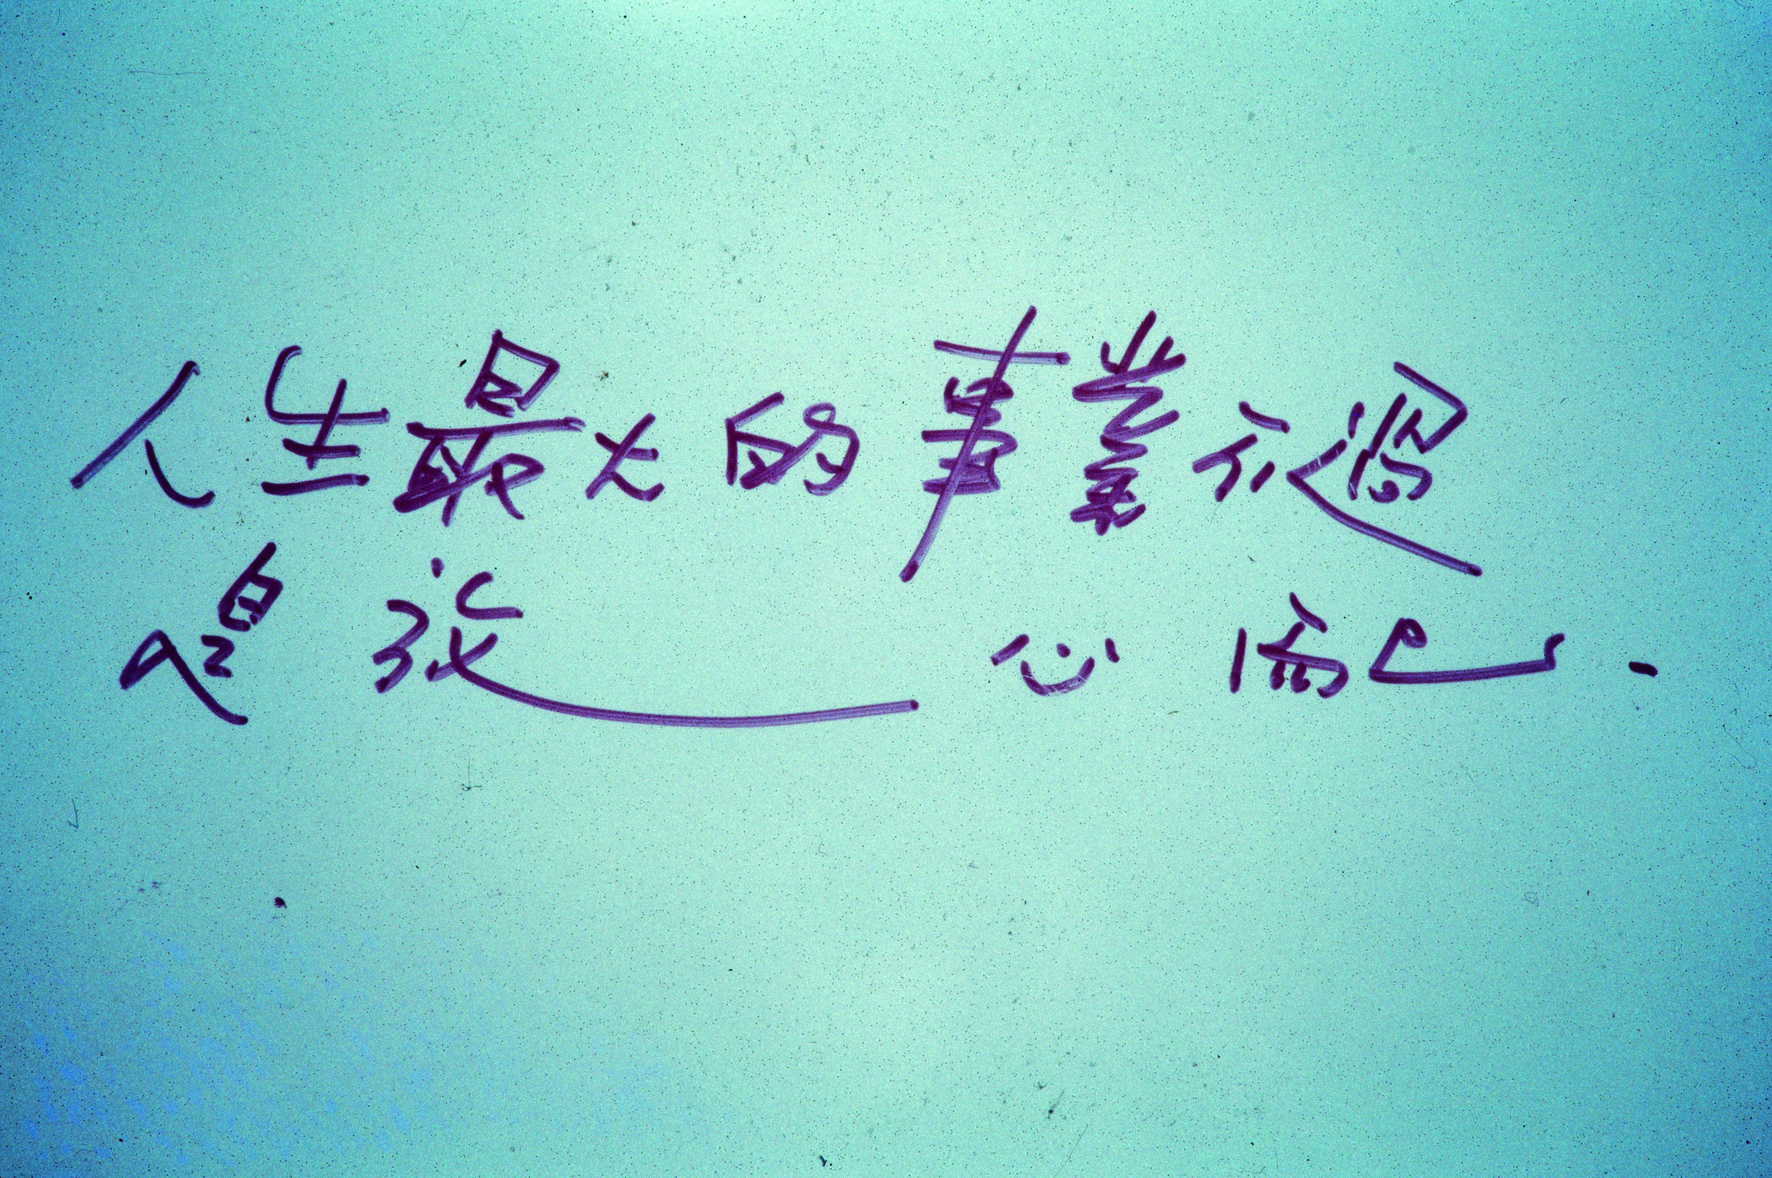 人生最大的事業不過
是放心而已.